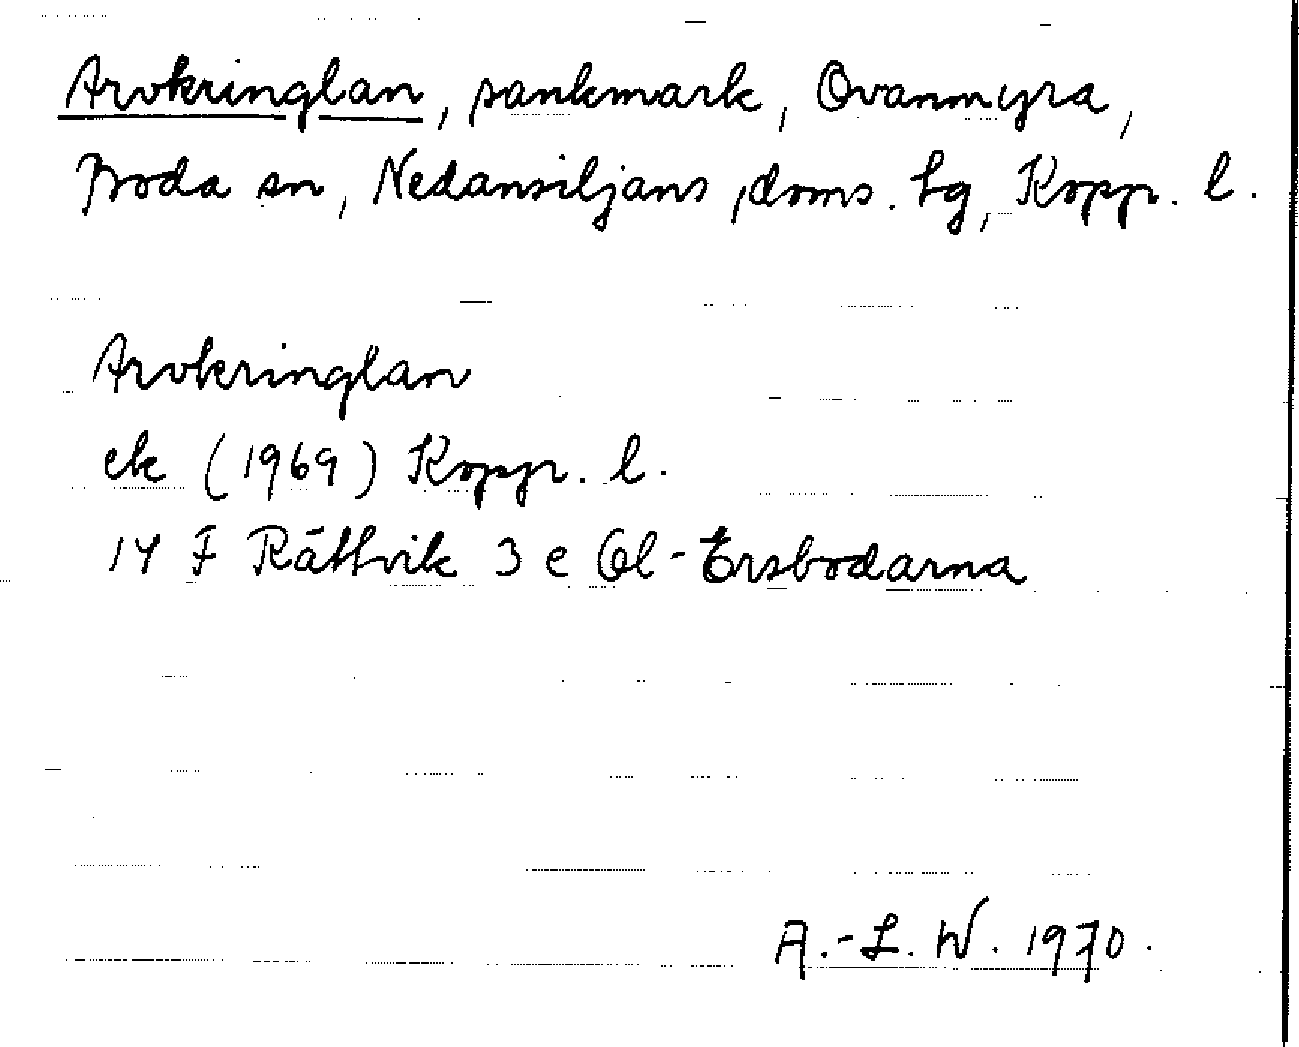 Arvkringlan, sankmark, Ovanmyra,
Boda sn, Nedansiljans doms. hg, Kopp. l.
Arvkringlan
ek (1969) Kopp. l.
14 F Rättvik 3 e Ol-Ersbodarna
A.-L. W. 1970.